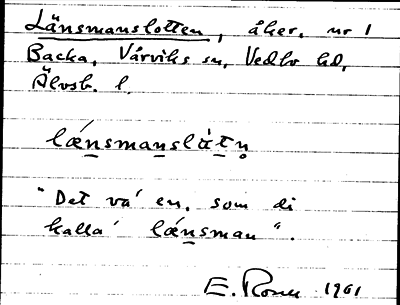 Länsmanslotten, åker, nr 1
Backa, Vårviks sn, Vedbo hd,
Älvsb. l.
lǽnsmanslὰtn̥
"Det va' en, som di
kalla' lǽnsman".
E. 1961